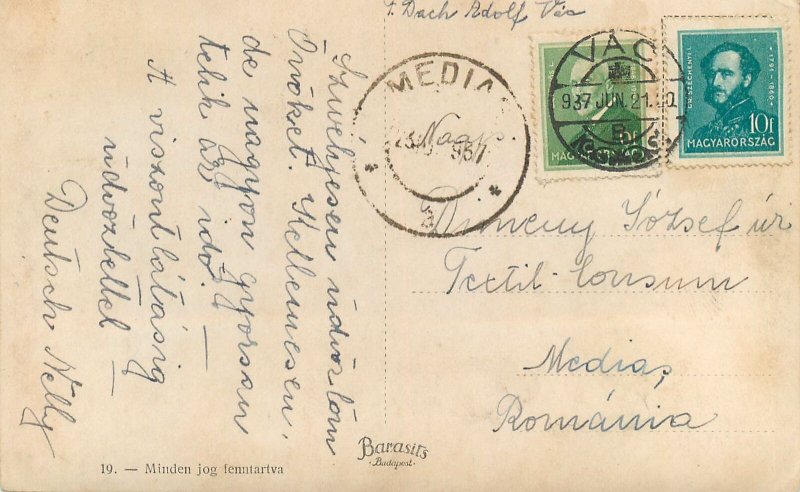 Dach Adolf Vác
VÁC
937 JUN. 21.
GR. SZÉCHENYI I.
1791-1860
10f
MAGYARORSZÁG
MEDIA
937
Szívélyesen üdvözlöm
Önöket. Kellemesen,
de nagyon gyorsan
telik az idő. —
A viszontlátásig
üdvözlettel
Deutsch Nelly
József úr
Textil-Consum
Mediaș
Románia
Barasits
Budapest
19. — Minden jog fenntartva